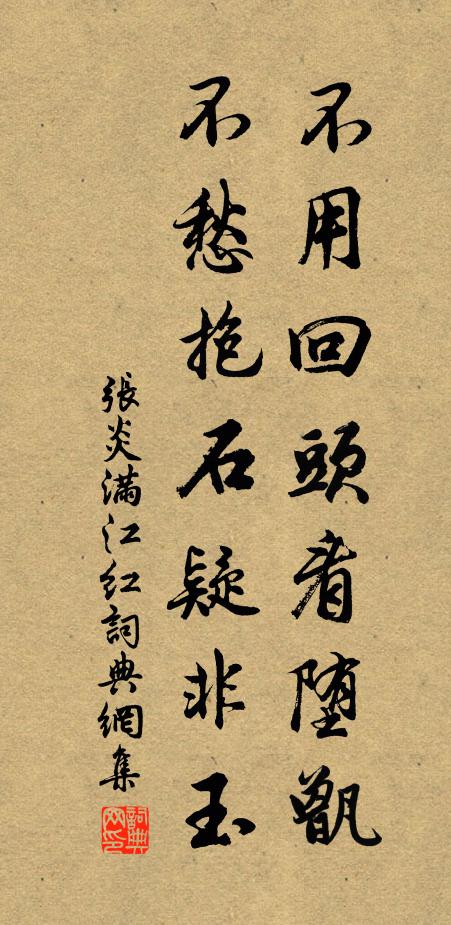 不用回頭看堕甑
不愁抱石疑非玉
張炎满江红詞典網集
詞典网印